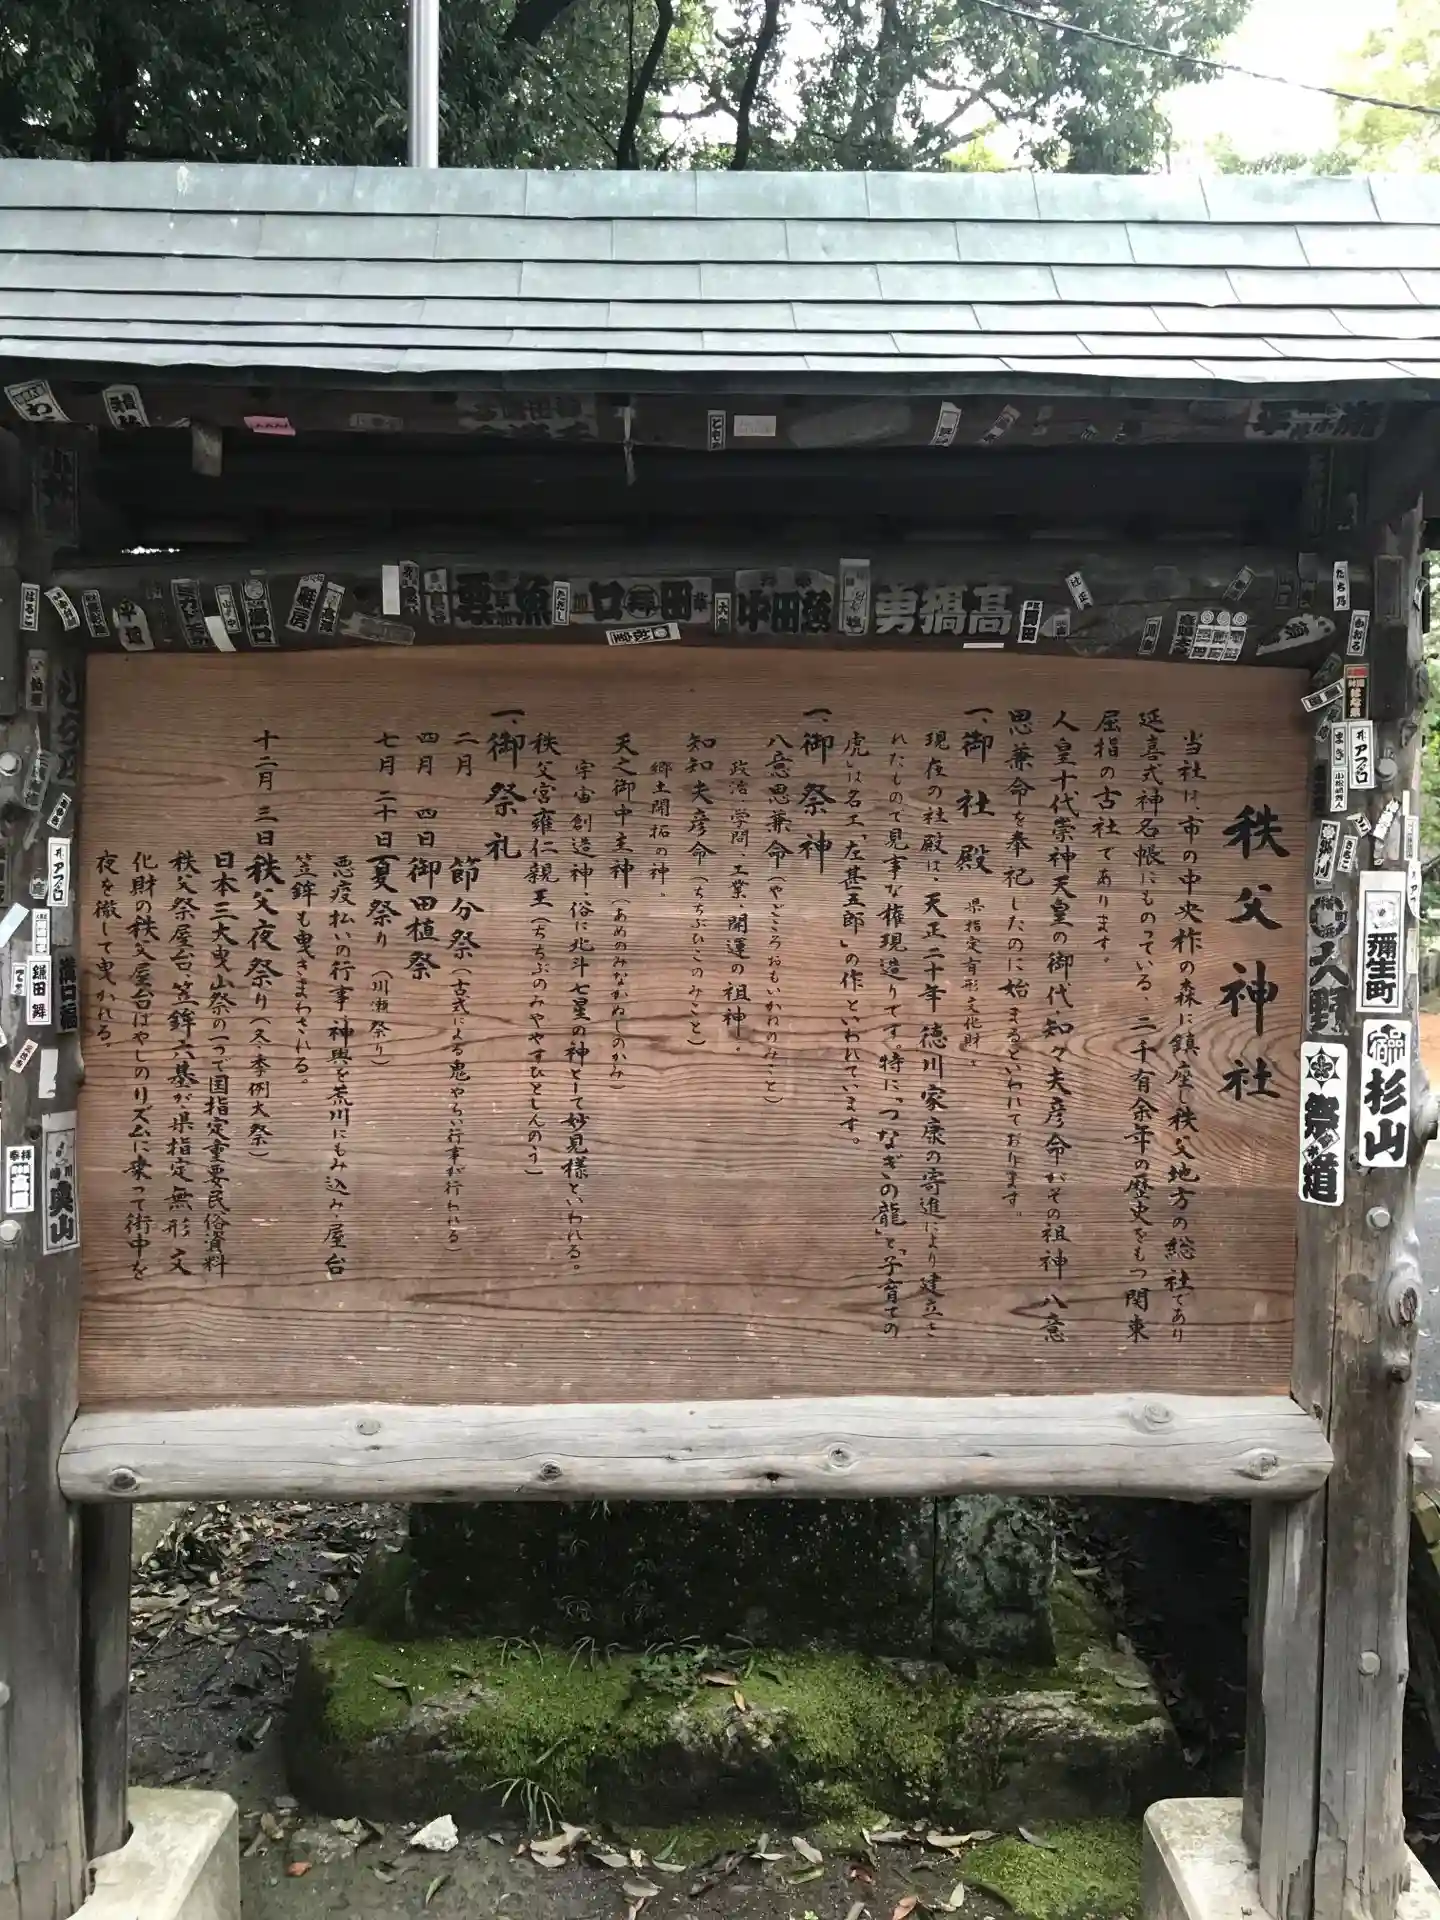 秩父神社
当社は、市の中央柞の森に鎮座し秩父地方の総社であり
延喜式神名帳にものっている、二千有余年の歴史をもつ関東
屈指の古社であります。
人皇十代崇神天皇の御代、知々夫彦命がその祖神 八意
思兼命を奉祀したのに始まるといわれております。
一、御社殿 県指定有形文化財。
現在の社殿は、天正二十年 徳川家康の寄進により建立さ
れたもので見事な権現造りです。特に「つなぎの龍」と「子育ての
虎」は名工「左甚五郎」の作といわれています。
一、御祭神
八意思兼命(やごころおもいかねのみこと)
政治、学問、工業、開運の祖神。
知知夫彦命(ちちぶひこのみこと)
郷土開拓の神。
天之御中主神(あめのみなかぬしのかみ)
宇宙創造神、俗に北斗七星の神として妙見様といわれる。
秩父宮雍仁親王(ちちぶのみややすひとしんのう)
一、御祭礼
二月 節分祭(古式による鬼やらい行事が行われる)
四月 四日 御田植祭
七月 二十日 夏祭り(川瀬祭り)
悪疫払いの行事 神輿を荒川にもみ込み、屋台
笠鉾も曳きまわされる。
十二月 三日 秩父夜祭り(冬季例大祭)
日本三大曳山祭の一つで国指定重要民俗資料
秩父祭屋台、笠鉾六基が県指定無形文
化財の秩父屋台ばやしのリズムに乗って街中を
夜を徹して曳かれる。
高橋勇
田口
彌生町
杉山
祭道
大野
井アブロ
井アブロ
鎌田
溝口
奥山
はるこ
たち乃
かおる
まき